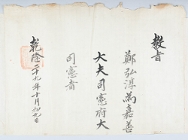 敎旨
鄭弘淳爲嘉善
大夫司憲府大
司憲者
乾隆二十九年十月 日